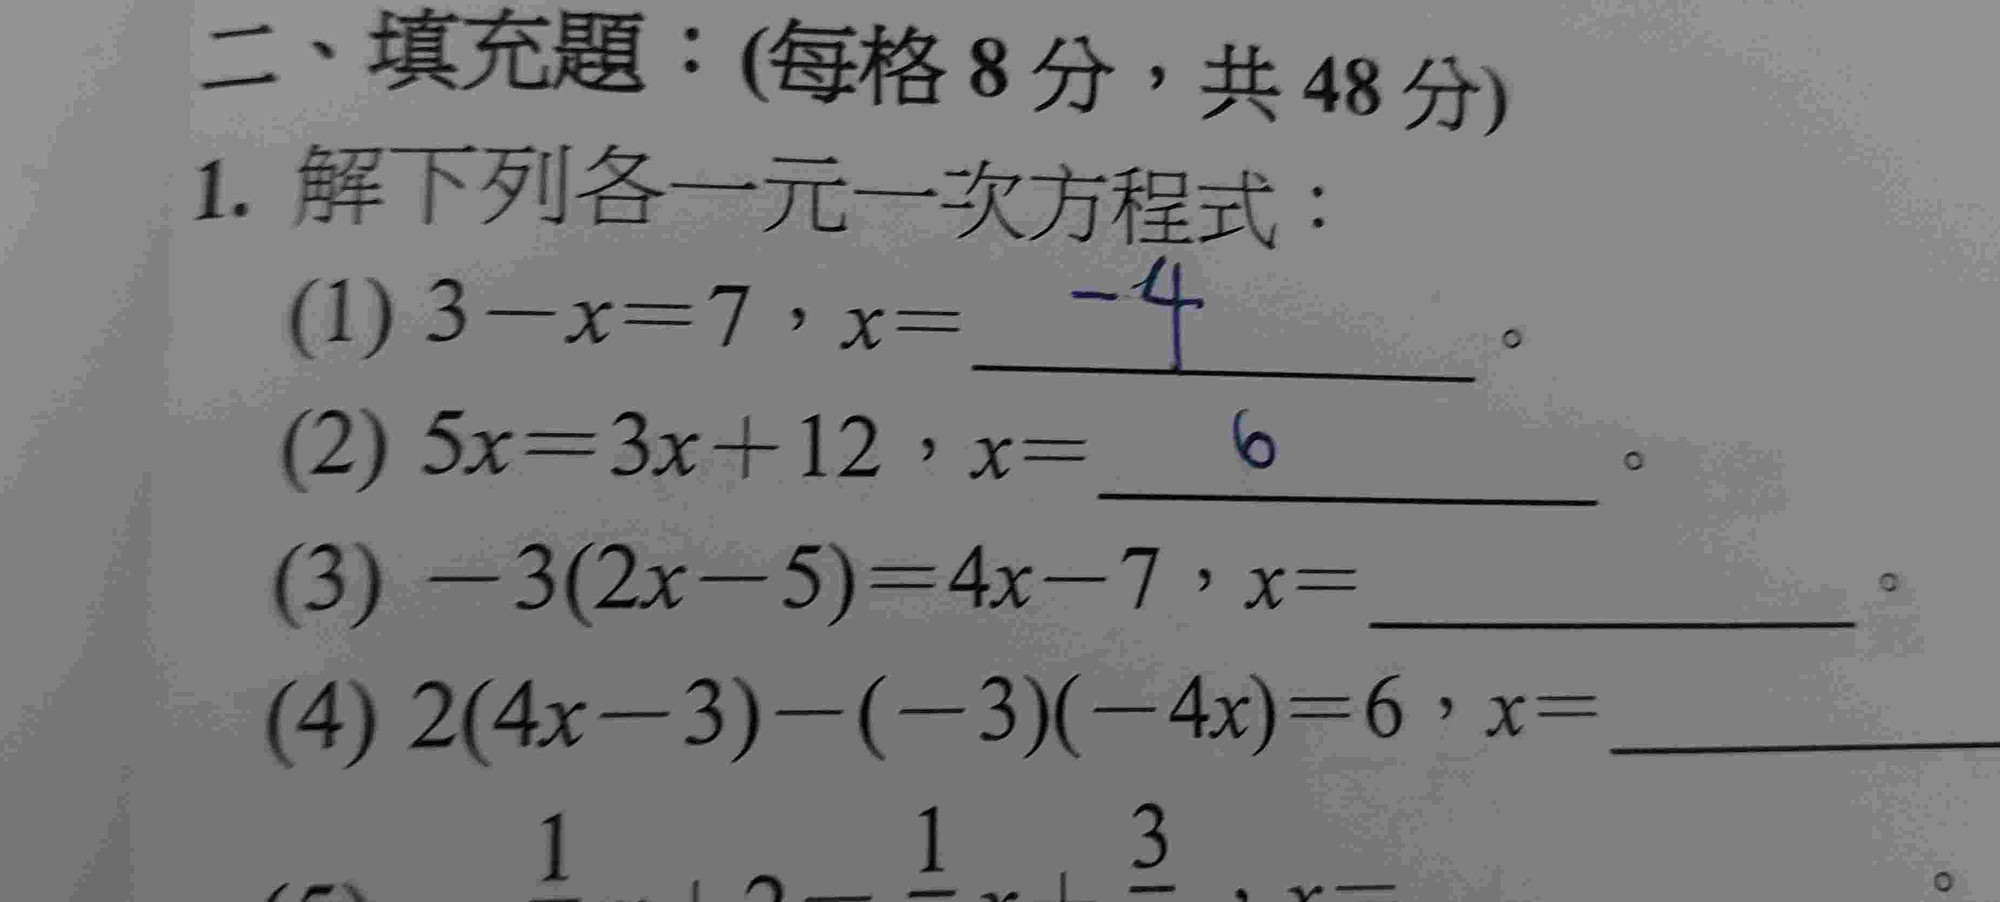 二、填充題：(每格 8 分，共 48 分)
1. 解下列各一元一次方程式：
(1) 3－x＝7，x＝ -4 。
(2) 5x＝3x＋12，x＝ 6 。
(3) －3(2x－5)＝4x－7，x＝ 。
(4) 2(4x－3)－(－3)(－4x)＝6，x＝